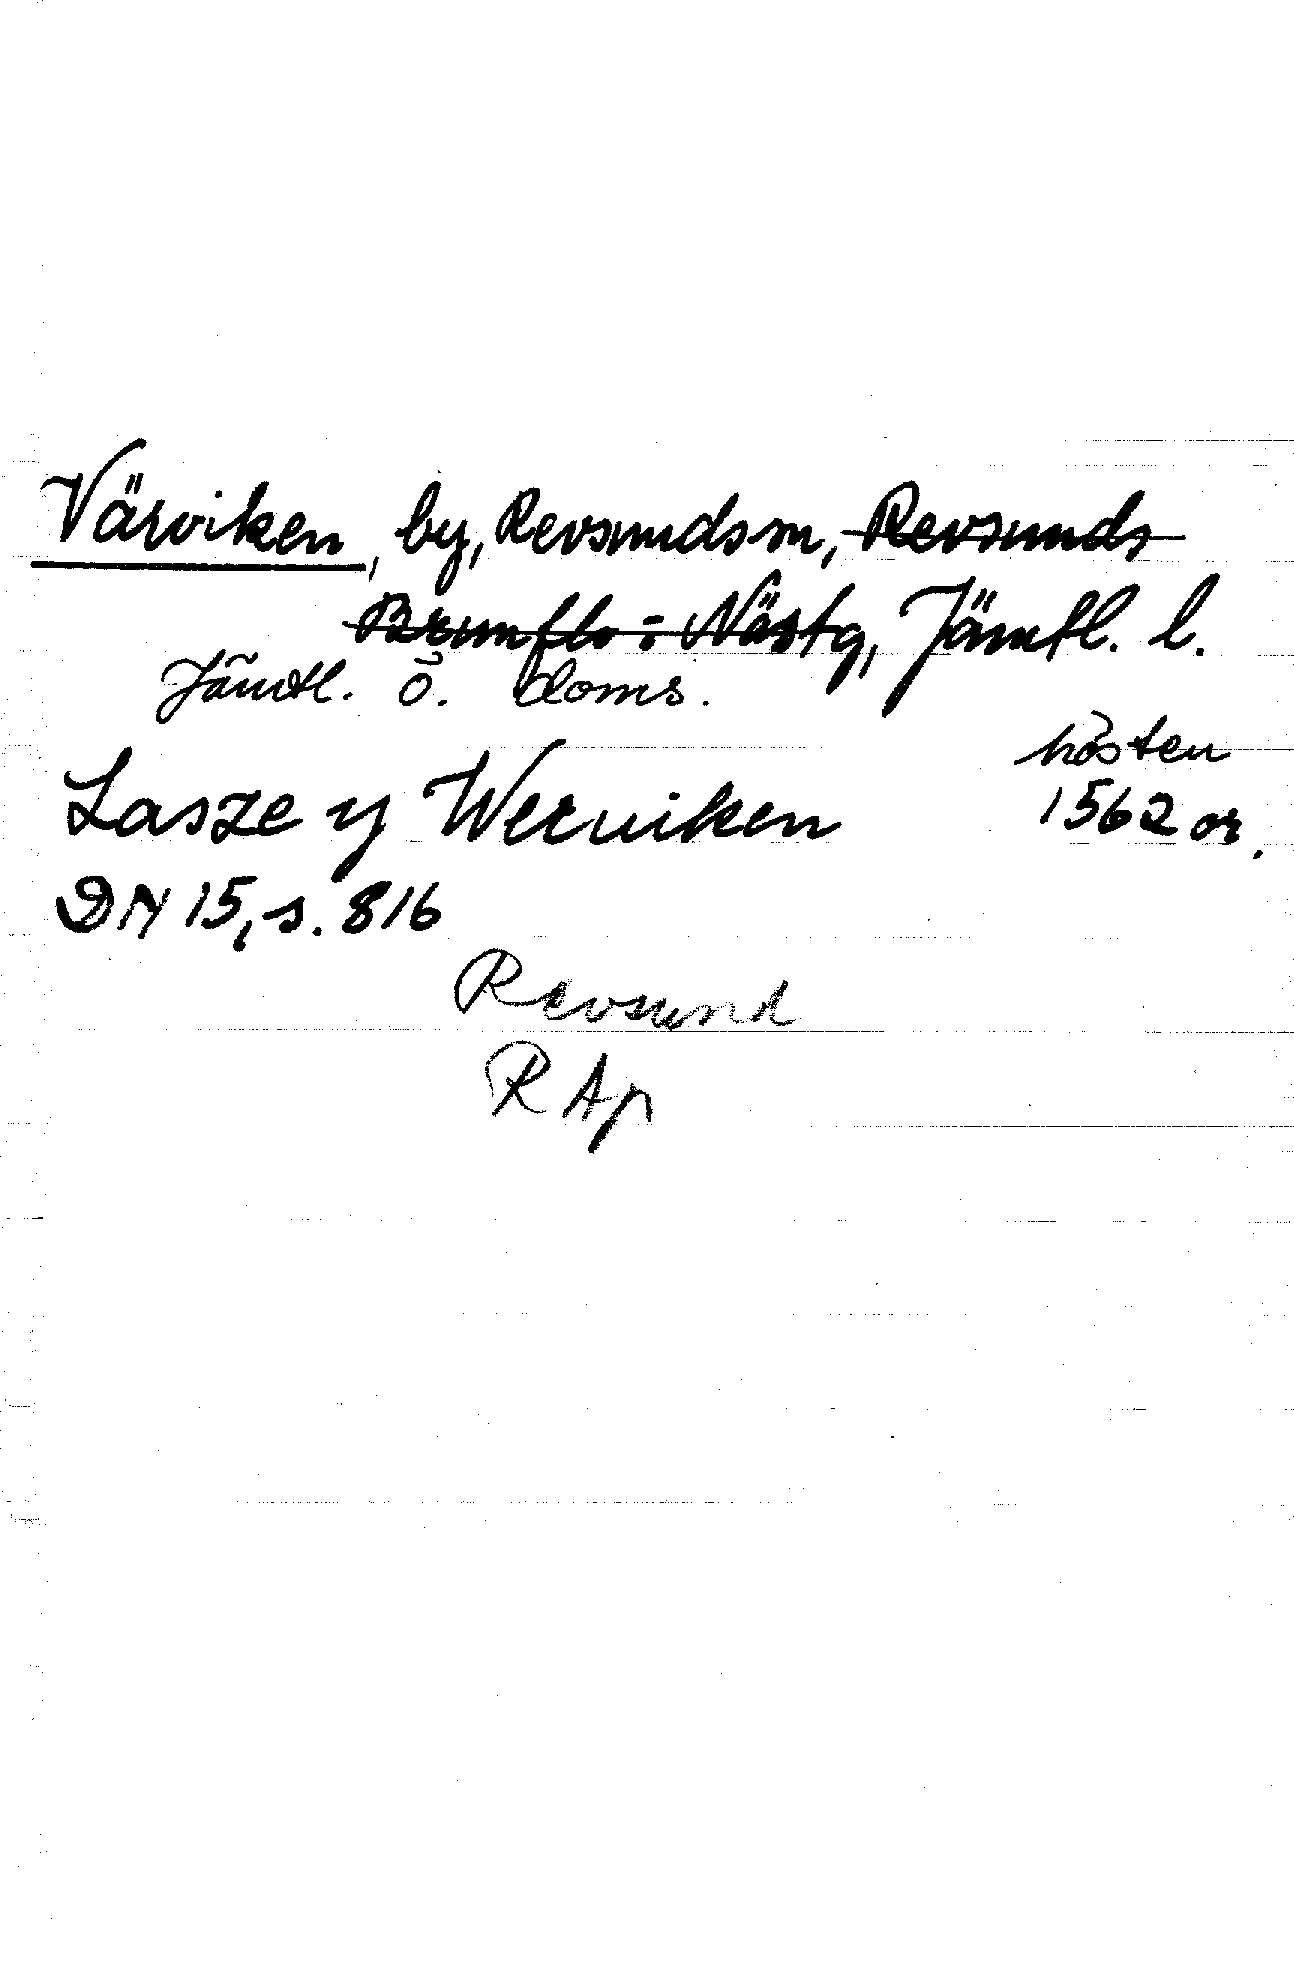 Värviken, by, Revsunds sn, Revsunds
Brunflo i Nästg, Jämtl. l.
Jämtl. ö. doms.
hösten
Lasze y Werviken 1562 or.
DN 15, s. 816
Revsund
R Ap